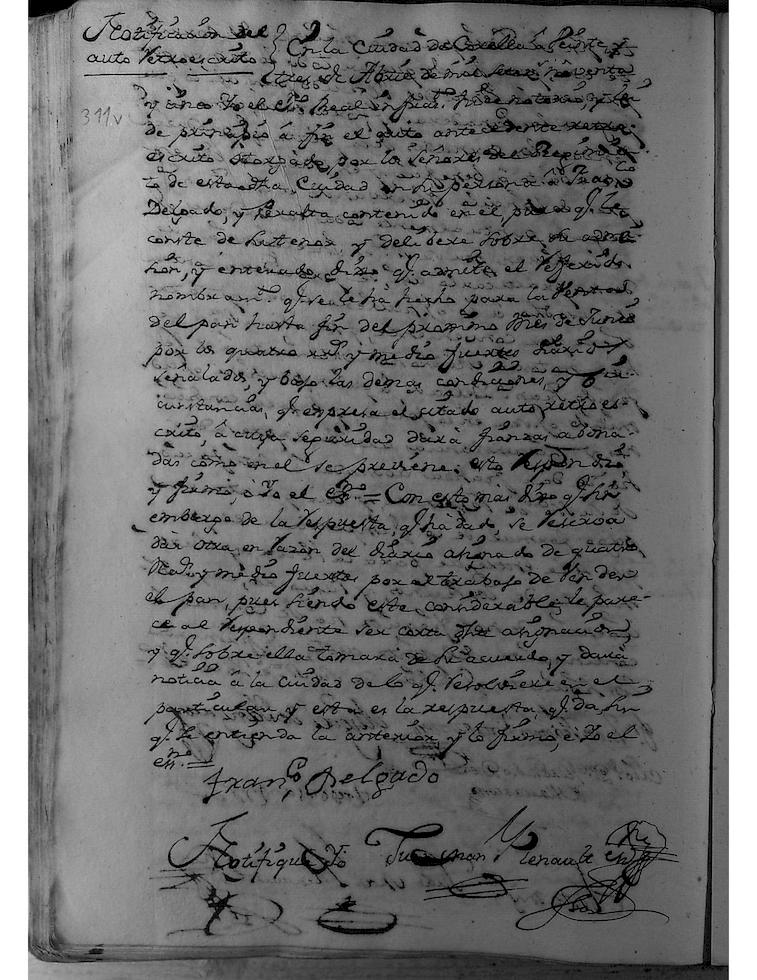 Notificación del
auto retroescrito
311v
En la Ciudad de Corella a veinte y
tres de Abril de mil setez.s noventa
y cinco Yo el Ess.no Real infras.to hice notorio y lei
de principio á fin el auto antecedente retro-
escrito otorgado, por los Señores del Regimien-
to de esta dha Ciudad en su persona á Fran.co
Delgado, y Peralta contenido en el, para q.e le
conste de su tenor, y delibere sobre su admi-
sion, y enterado, dixo q.e admite el refferido
nombram.to q.e se le há hecho para la Venta
del pan hasta fin del proximo mes de Junio
por los quatro rr.s y medio fuertes diarios
señalados, y bajo las demas condiciones, y cir-
cunstancias, q.e expresa el citado auto retroes-
crito, á cuya seguridad dará fianzas abona-
das como en el se previene: esto respondió
y firmó, é Yo el Ess.no = Con esto mas dixo q.e sin
embargo de la respuesta q.e há dado, se reserva
dár otra en razon del diario asignado de quatro
Rea.s y medio fuertes por el trabajo de Vender
el pan, pues siendo este considerable le pare-
ce al respondiente ser corta dha asignacion,
y q.e sobre ella tomará su acuerdo, y dará
noticia á la Ciudad de lo q.e resolviere en el
particular, y esta es la respuesta, q.e da, sin
q.e se entienda la anterior, y lo firmó, é Yo el
ess.no =
Fran.co Delgado
Notifiqué Yo Juan Renault ess.no